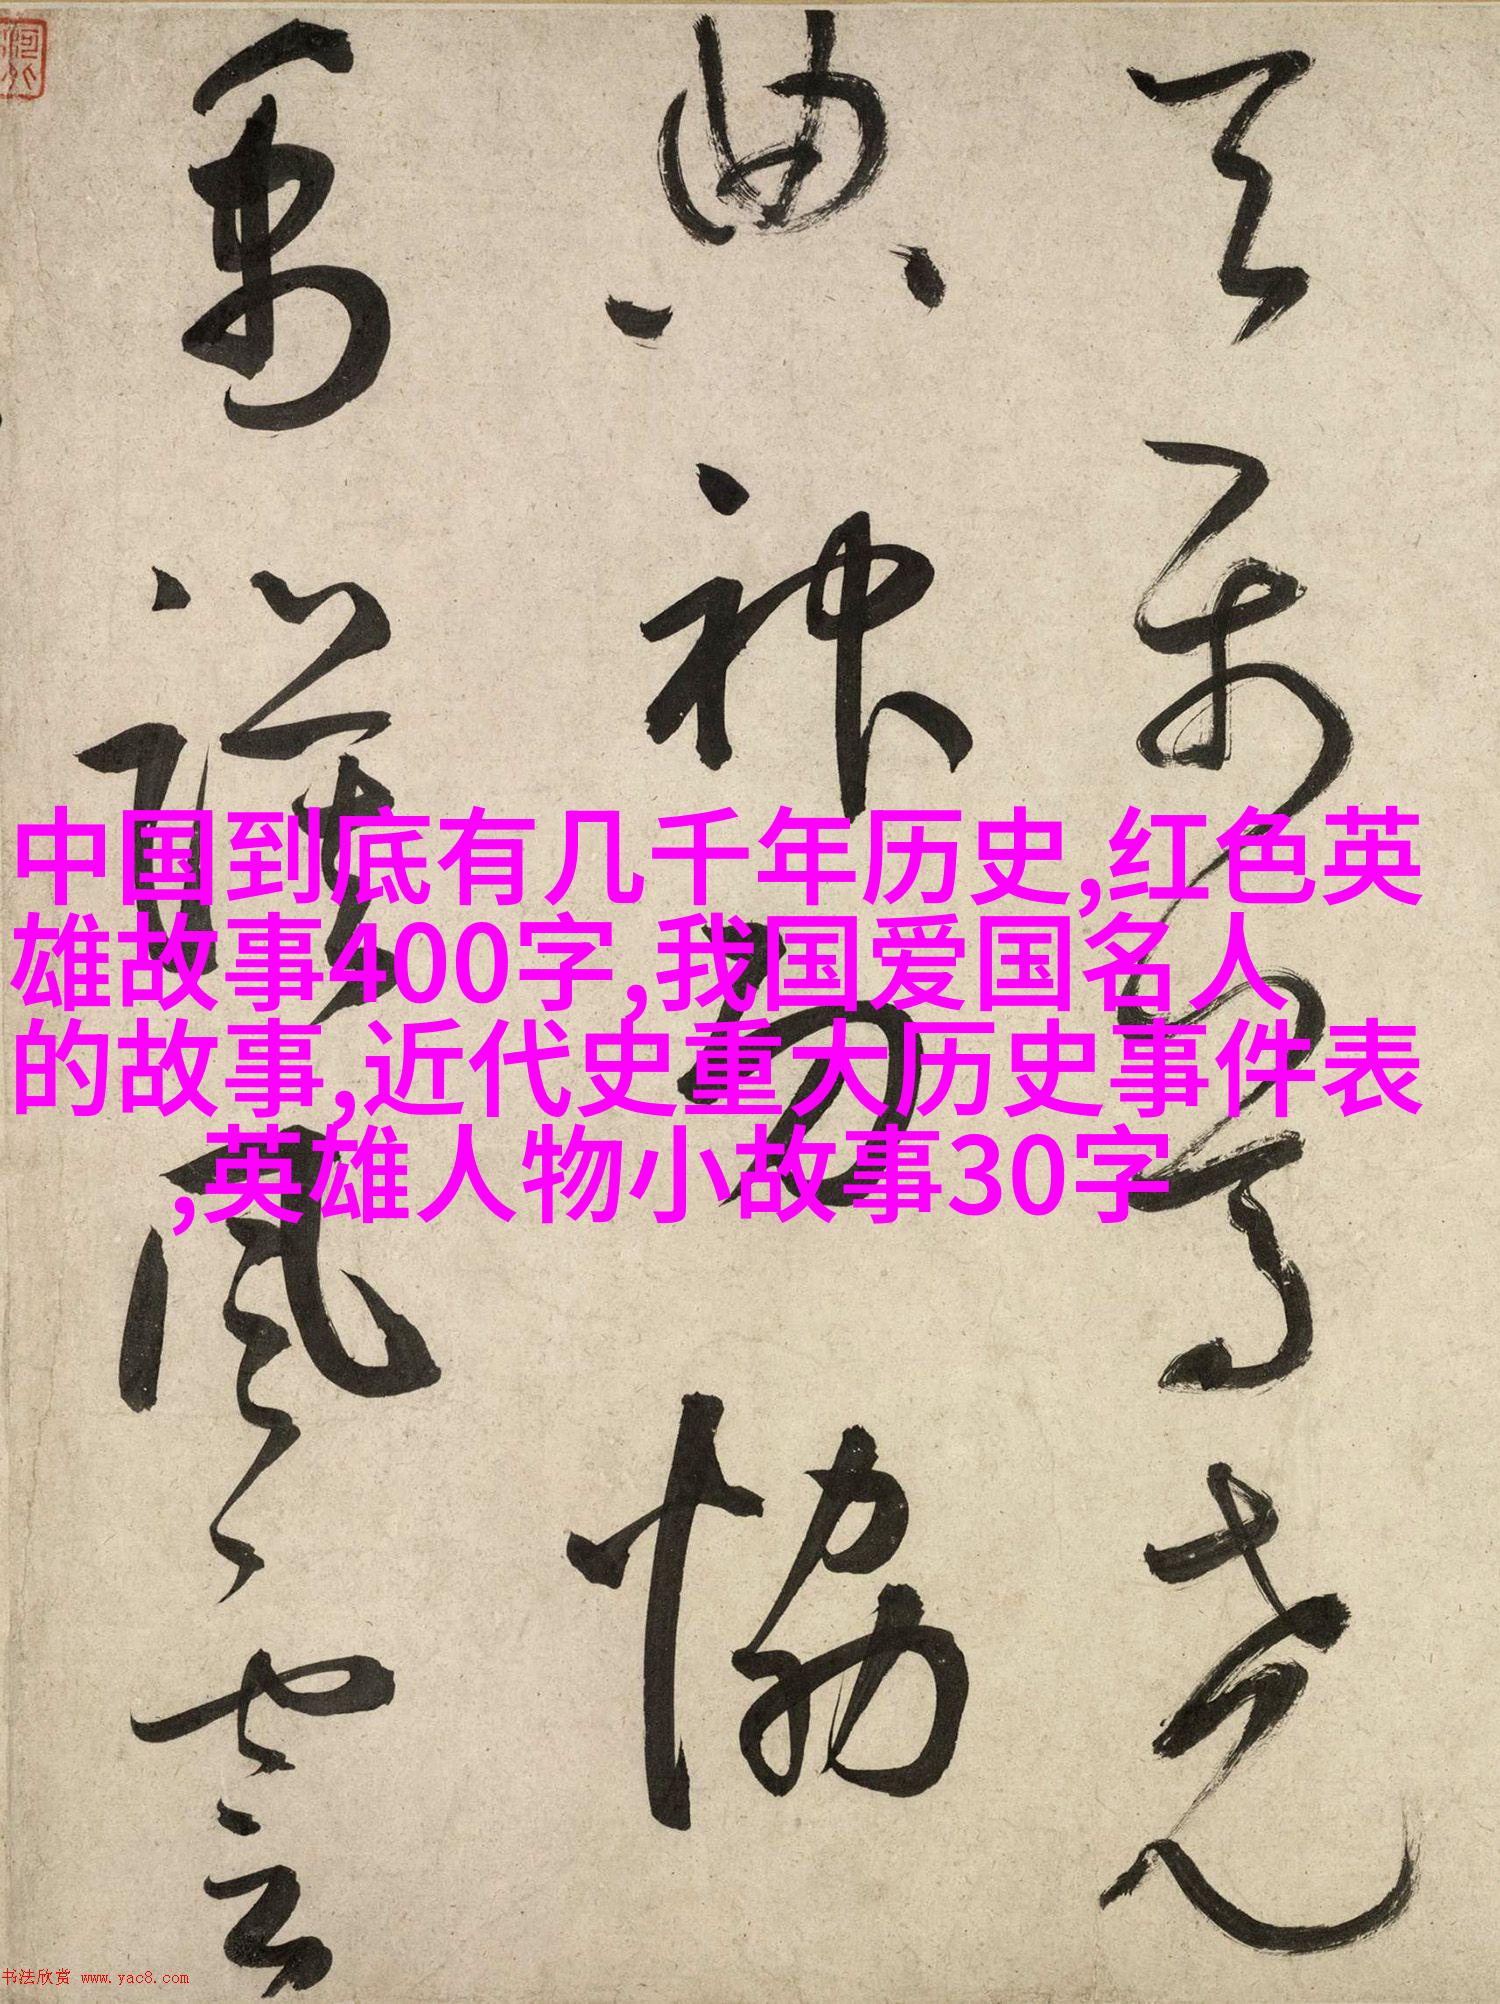 天堯
典神物協
禹謨風雲
中国到底有几千年历史,红色英
雄故事400字,我国爱国名人
的故事,近代史重大历史事件表
,英雄人物小故事30字
书法欣赏 www.yac8.com